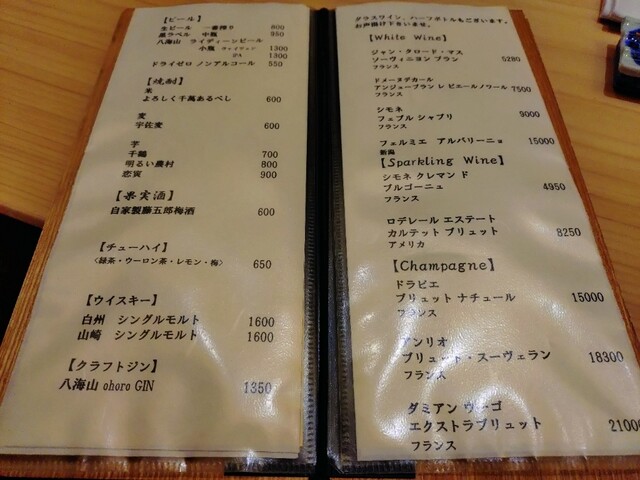 【ビール】
生ビール 一番搾り 800
黒ラベル 中瓶 950
八海山 ライディーンビール
小瓶 ヴァイツェン 1300
IPA 1300
ドライゼロ ノンアルコール 550
【焼酎】
米
よろしく千萬あるべし 600
麦
宇佐麦 600
芋
千鶴 700
明るい農村 800
恋寅 900
【果実酒】
自家製藤五郎梅酒 600
【チューハイ】
<緑茶・ウーロン茶・レモン・梅> 650
【ウイスキー】
白州 シングルモルト 1600
山崎 シングルモルト 1600
【クラフトジン】
八海山 ohoro GIN 1350
グラスワイン、ハーフボトルもございます。
お声掛け下さいませ。
【White Wine】
ジャン・タロード・マス
ソーヴィニヨン ブラン 5280
フランス
ドメーヌデカール
アンジューブラン レ ピエールノワール 7500
フランス
シモネ
フェブル シャブリ 9000
フランス
フェルミエ アルバリーニョ 15000
新潟
【Sparkling Wine】
シモネ クレマン ド
ブルゴーニュ 4950
フランス
ロデレール エステート
カルテット ブリュット 8250
アメリカ
【Champagne】
ドラピエ
ブリュット ナチュール 15000
フランス
アンリオ
ブリュット・スーヴェラン 18300
フランス
ダミアン ウーゴ
エクストラブリュット 21000
フランス